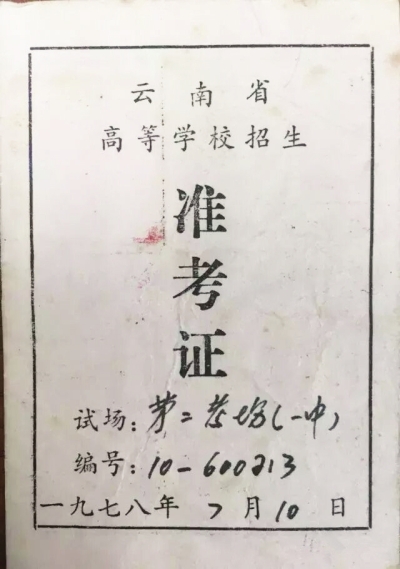 云南省
高等学校招生
准
考
证
试场：第二考场(一中)
编号：10-600213
一九七八年 7月10日